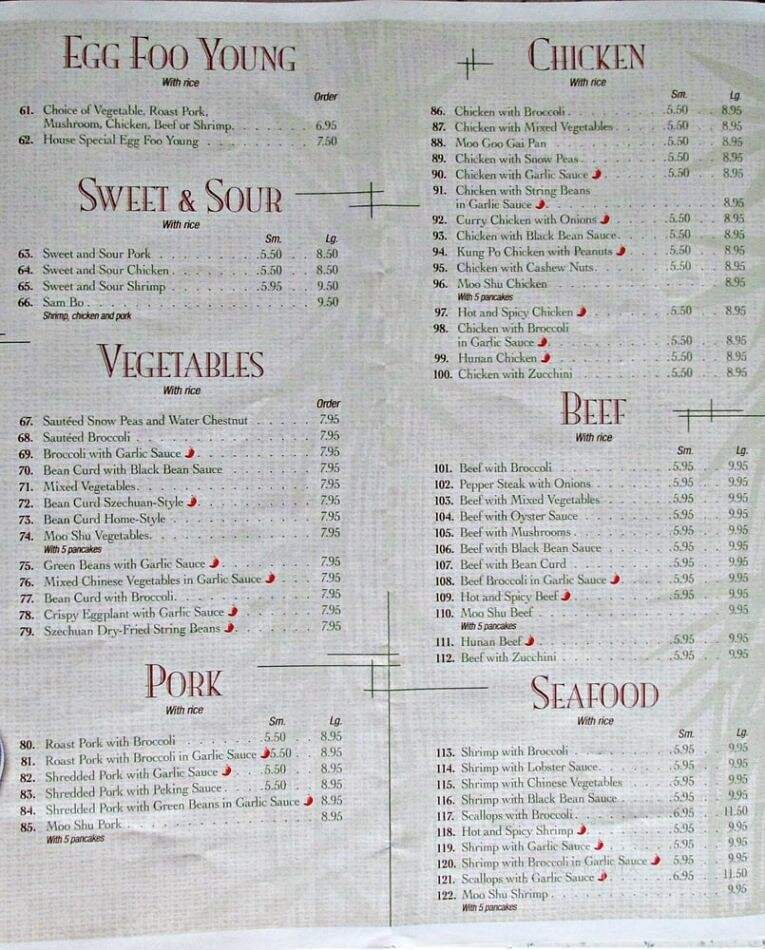 EGG FOO YOUNG
With rice
Order
61. Choice of Vegetable, Roast Pork,
Mushroom, Chicken, Beef or Shrimp. 6.95
62. House Special Egg Foo Young 7.50
SWEET & SOUR
With rice
Sm. Lg.
63. Sweet and Sour Pork 5.50 8.50
64. Sweet and Sour Chicken 5.50 8.50
65. Sweet and Sour Shrimp 5.95 9.50
66. Sam Bo 9.50
Shrimp, chicken and pork
VEGETABLES
With rice
Order
67. Sautéed Snow Peas and Water Chestnut 7.95
68. Sautéed Broccoli 7.95
69. Broccoli with Garlic Sauce 7.95
70. Bean Curd with Black Bean Sauce 7.95
71. Mixed Vegetables 7.95
72. Bean Curd Szechuan-Style 7.95
73. Bean Curd Home-Style 7.95
74. Moo Shu Vegetables. 7.95
With 5 pancakes
75. Green Beans with Garlic Sauce 7.95
76. Mixed Chinese Vegetables in Garlic Sauce 7.95
77. Bean Curd with Broccoli 7.95
78. Crispy Eggplant with Garlic Sauce 7.95
79. Szechuan Dry-Fried String Beans 7.95
PORK
With rice
Sm. Lg.
80. Roast Pork with Broccoli 5.50 8.95
81. Roast Pork with Broccoli in Garlic Sauce 5.50 8.95
82. Shredded Pork with Garlic Sauce 5.50 8.95
83. Shredded Pork with Peking Sauce 5.50 8.95
84. Shredded Pork with Green Beans in Garlic Sauce 8.95
85. Moo Shu Pork 8.95
With 5 pancakes
CHICKEN
With rice
Sm. Lg.
86. Chicken with Broccoli 5.50 8.95
87. Chicken with Mixed Vegetables 5.50 8.95
88. Moo Goo Gai Pan 5.50 8.95
89. Chicken with Snow Peas 5.50 8.95
90. Chicken with Garlic Sauce 5.50 8.95
91. Chicken with String Beans
in Garlic Sauce 8.95
92. Curry Chicken with Onions 5.50 8.95
93. Chicken with Black Bean Sauce 5.50 8.95
94. Kung Po Chicken with Peanuts 5.50 8.95
95. Chicken with Cashew Nuts 5.50 8.95
96. Moo Shu Chicken 8.95
With 5 pancakes
97. Hot and Spicy Chicken 5.50 8.95
98. Chicken with Broccoli
in Garlic Sauce 5.50 8.95
99. Hunan Chicken 5.50 8.95
100. Chicken with Zucchini 5.50 8.95
BEEF
With rice
Sm. Lg.
101. Beef with Broccoli 5.95 9.95
102. Pepper Steak with Onions 5.95 9.95
103. Beef with Mixed Vegetables 5.95 9.95
104. Beef with Oyster Sauce 5.95 9.95
105. Beef with Mushrooms 5.95 9.95
106. Beef with Black Bean Sauce 5.95 9.95
107. Beef with Bean Curd 5.95 9.95
108. Beef Broccoli in Garlic Sauce 5.95 9.95
109. Hot and Spicy Beef 5.95 9.95
110. Moo Shu Beef 9.95
With 5 pancakes
111. Hunan Beef 5.95 9.95
112. Beef with Zucchini 5.95 9.95
SEAFOOD
With rice
Sm. Lg.
113. Shrimp with Broccoli 5.95 9.95
114. Shrimp with Lobster Sauce 5.95 9.95
115. Shrimp with Chinese Vegetables 5.95 9.95
116. Shrimp with Black Bean Sauce 5.95 9.95
117. Scallops with Broccoli 6.95 11.50
118. Hot and Spicy Shrimp 5.95 9.95
119. Shrimp with Garlic Sauce 5.95 9.95
120. Shrimp with Broccoli in Garlic Sauce 5.95 9.95
121. Scallops with Garlic Sauce 6.95 11.50
122. Moo Shu Shrimp 9.95
With 5 pancakes